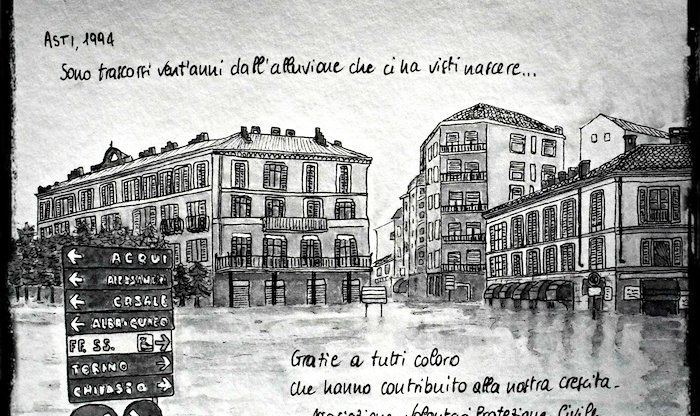 ASTI, 1994
Sono trascorsi vent'anni dall'alluvione che ci ha visti nascere...
ACQUI
ALESSANDRIA
CASALE
ALBA-CUNEO
FF SS.
TORINO
CHIVASSO
Grazie a tutti coloro
che hanno contribuito alla nostra crescita.
Associazione Volontari Protezione Civile